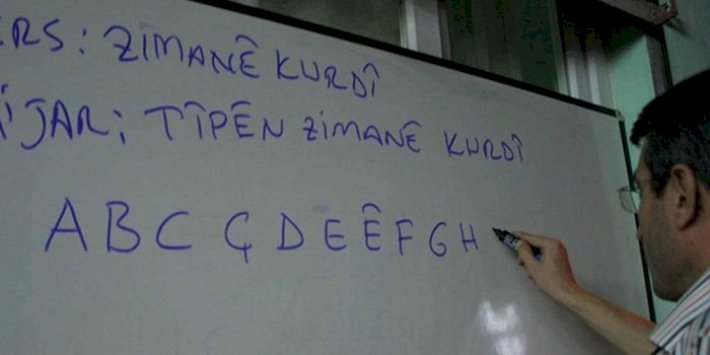 ERS: ZIMANÊ KURDÎ
IJAR: TÎPÊN ZIMANÊ KURDÎ
A B C Ç D E Ê F G H